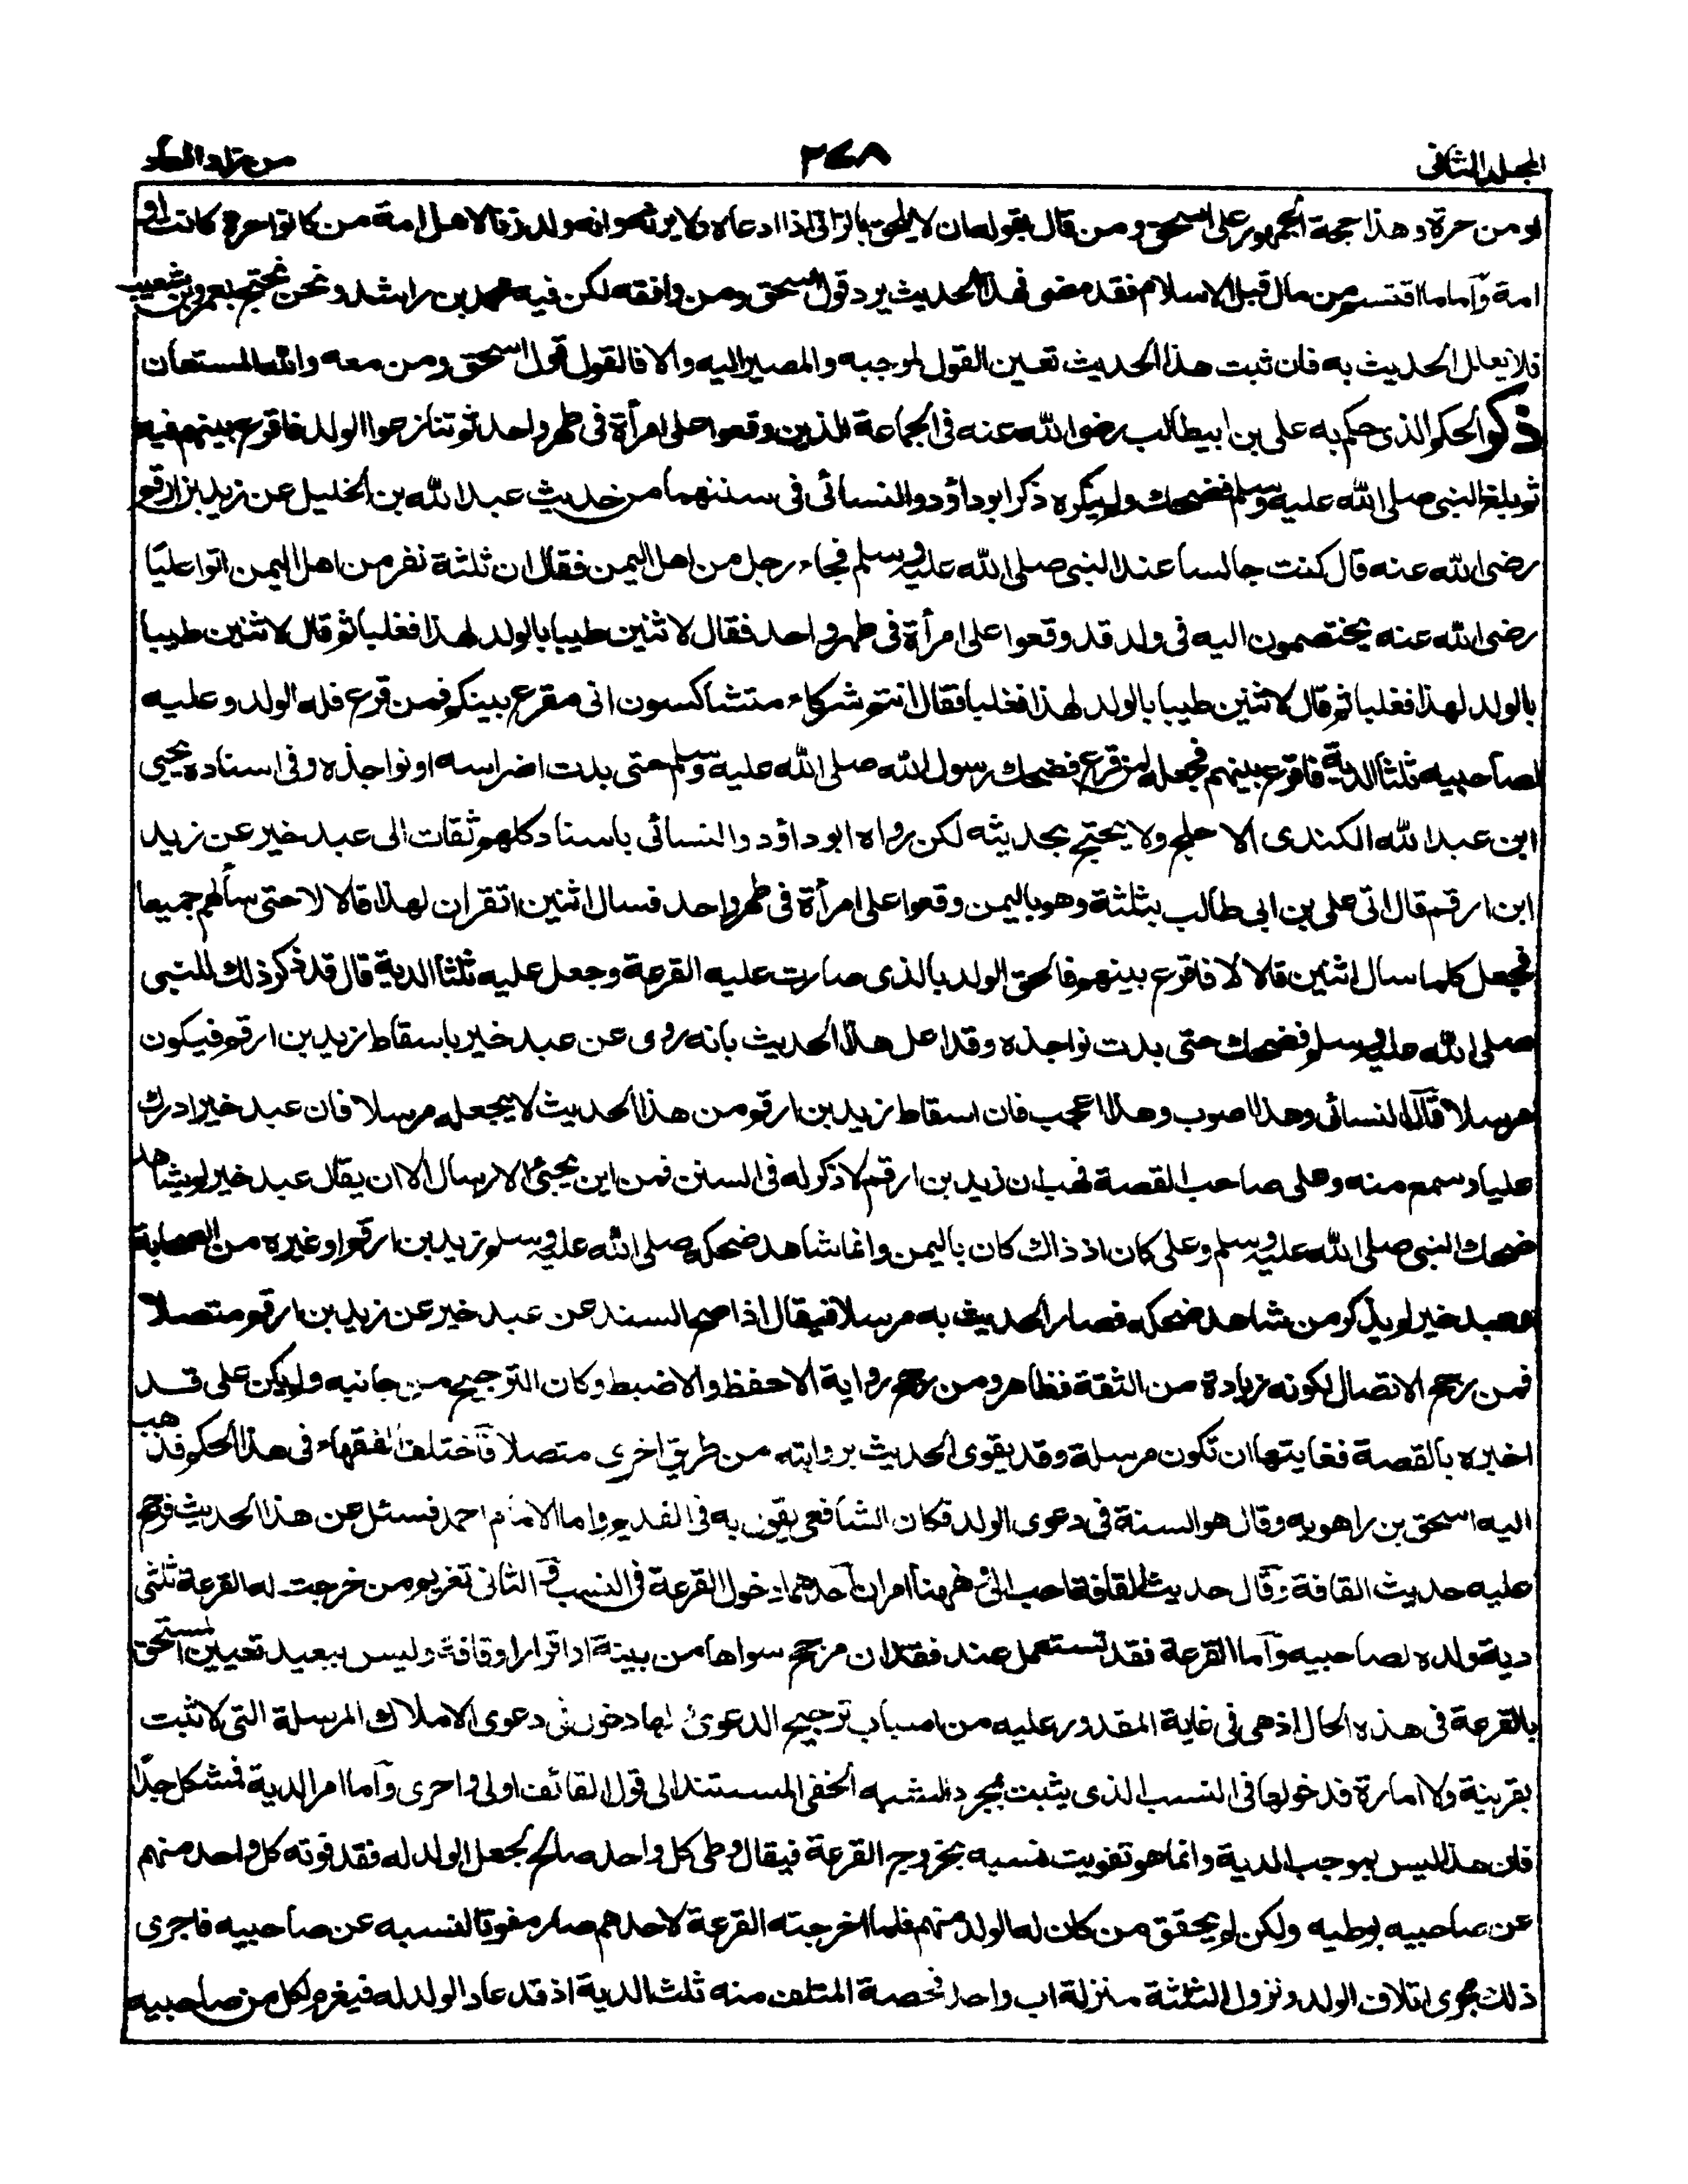 المجلد الثانى
٣٧٨
من زاد المعاد
او من حرة وهذا حجة الجمهور على اسحق ومن قال بقوله ان لا يلحق بالزانى اذا ادعاه ولا يرثه وانه ولد زنا لاهل امه من كانوا حرة كانت او
امة وآما ما اقتسم من مال قبل الاسلام فقد مضى فهذا الحديث يرد قول اسحق ومن وافقه لكن فيه محمد بن راشد ونحن نحتج بعمرو بن شعيب
فلا يعلل الحديث به فان ثبت هذا الحديث تعين القول لموجبه والمصير اليه والا فالقول قول اسحق ومن معه والله المستعان
ذكر الحكم الذى حكم به على بن ابيطالب رضى الله عنه فى الجماعة الذين وقعوا على امرأة فى طهر واحد ثم تنازحوا الولد فاقرع بينهم فيه
ثم بلغ النبى صلى الله عليه وسلم فضحك ولم ينكره ذكر ابو داؤد والنسائى فى سننهما من حديث عبد الله بن الخليل عن زيد بن ارقم
رضى الله عنه قال كنت جالسا عند النبى صلى الله عليه وسلم فجاء رجل من اهل اليمن فقال ان ثلثة نفر من اهل اليمن اتوا عليّا
رضى الله عنه يختصمون اليه فى ولد قد وقعوا على امرأة فى طهر واحد فقال لاثنين طيبا بالولد لهذا فغلبا ثم قال لاثنين طيبا
بالولد لهذا فغلبا ثم قال لاثنين طيبا بالولد لهذا فغلبا فقال انتم شركاء متشاكسون انى مقرع بينكم فمن قرع فله الولد وعليه
لصاحبيه ثلثا الدية فاقرع بينهم فجعله لمن قرع فضحك رسول الله صلى الله عليه وسلم حتى بدت اضراسه او نواجذه وفى اسناده يحيى
ابن عبد الله الكندى الاجلح ولا يحتج بحديثه لكن رواه ابو داؤد والنسائى باسناد كلهم ثقات الى عبد خير عن زيد
ابن ارقم قال اتى على بن ابى طالب بثلثة وهو باليمن وقعوا على امرأة فى طهر واحد فسال اثنين اتقران لهذا قالا لا حتى سألهم جميعا
فجعل كلما سال اثنين قالا لا فاقرع بينهم فالحق الولد بالذى صارت عليه القرعة وجعل عليه ثلثا الدية قال قد ذكر ذلك للنبى
صلى الله عليه وسلم فضحك حتى بدت نواجذه وقد اعل هذا الحديث بانه روى عن عبد خير باسقاط زيد بن ارقم فيكون
مرسلا قال النسائى وهذا اصوب وهذا اعجب فان اسقاط زيد بن ارقم من هذا الحديث لا يجعله مرسلا فان عبد خير ادرك
عليا وسمع منه وعلى صاحب القصة فهب ان زيد بن ارقم لا ذكر له فى السنن فمن اين يجئ الارسال الا ان يقال عبد خير لم يشاهد
ضحك النبى صلى الله عليه وسلم وعلى كان اذ ذاك كان باليمن وانما شاهد ضحكه صلى الله عليه وسلم زيد بن ارقم او غيره من الصحابة
وعبد خير لم يذكر من شاهد ضحكه فصار الحديث به مرسلا فيقال اذا صح السند عن عبد خير عن زيد بن ارقم متصلا
فمن رجح الاتصال لكونه زيادة من الثقة فظاهر ومن رجح رواية الاحفظ والاضبط وكان الترجيح من جانبه ولم يكن على قد
اخبره بالقصة فغايتها ان تكون مرسلة وقد يقوى الحديث بروايته من طريق اخرى متصلا فآختلف الفقهاء فى هذا الحكم فذهب
اليه اسحق بن راهويه وقال هو السنة فى دعوى الولد فكان الشافعى يقول به فى القديم واما الامام احمد فسئل عن هذا الحديث فرجح
عليه حديث القافة وقال حديث القافة احب الى فههنا امران احدهما دخول القرعة فى النسب والثانى تغريم من خرجت له القرعة ثلثى
دية ولده لصاحبيه وآما القرعة فقد تستعمل عند فقدان مرجح سواها من بينة او اقرار او قافة وليس ببعيد تعيين المستحق
بالقرعة فى هذه الحال اذ هى فى غاية المقدور عليه من اسباب ترجيح الدعوى لها دخول فى دعوى الاملاك المرسلة التى لا تثبت
بقرينة ولا امارة فدخولها فى النسب الذى يثبت بمجرد الشبه الخفى المستند الى قول القائف اولى واحرى وآما امر الدية فمشكل جدّا
فان هذا ليس بموجب الدية وانما هو تفويت نسبه بخروج القرعة فيقال وطى كل واحد صالح لجعل الولد له فقد فوته كل واحد منهم
عن صاحبيه بوطيه ولكن لم يتحقق من كان له الولد منهم فلما اخرجته القرعة لاحدهم صار مفوتا لنسبه عن صاحبيه فاجرى
ذلك مجرى اتلاف الولد ونزول الثلثة منزلة اب واحد فحصة المتلف منه ثلث الدية اذ قد عاد الولد له فيغرم لكل من صاحبيه